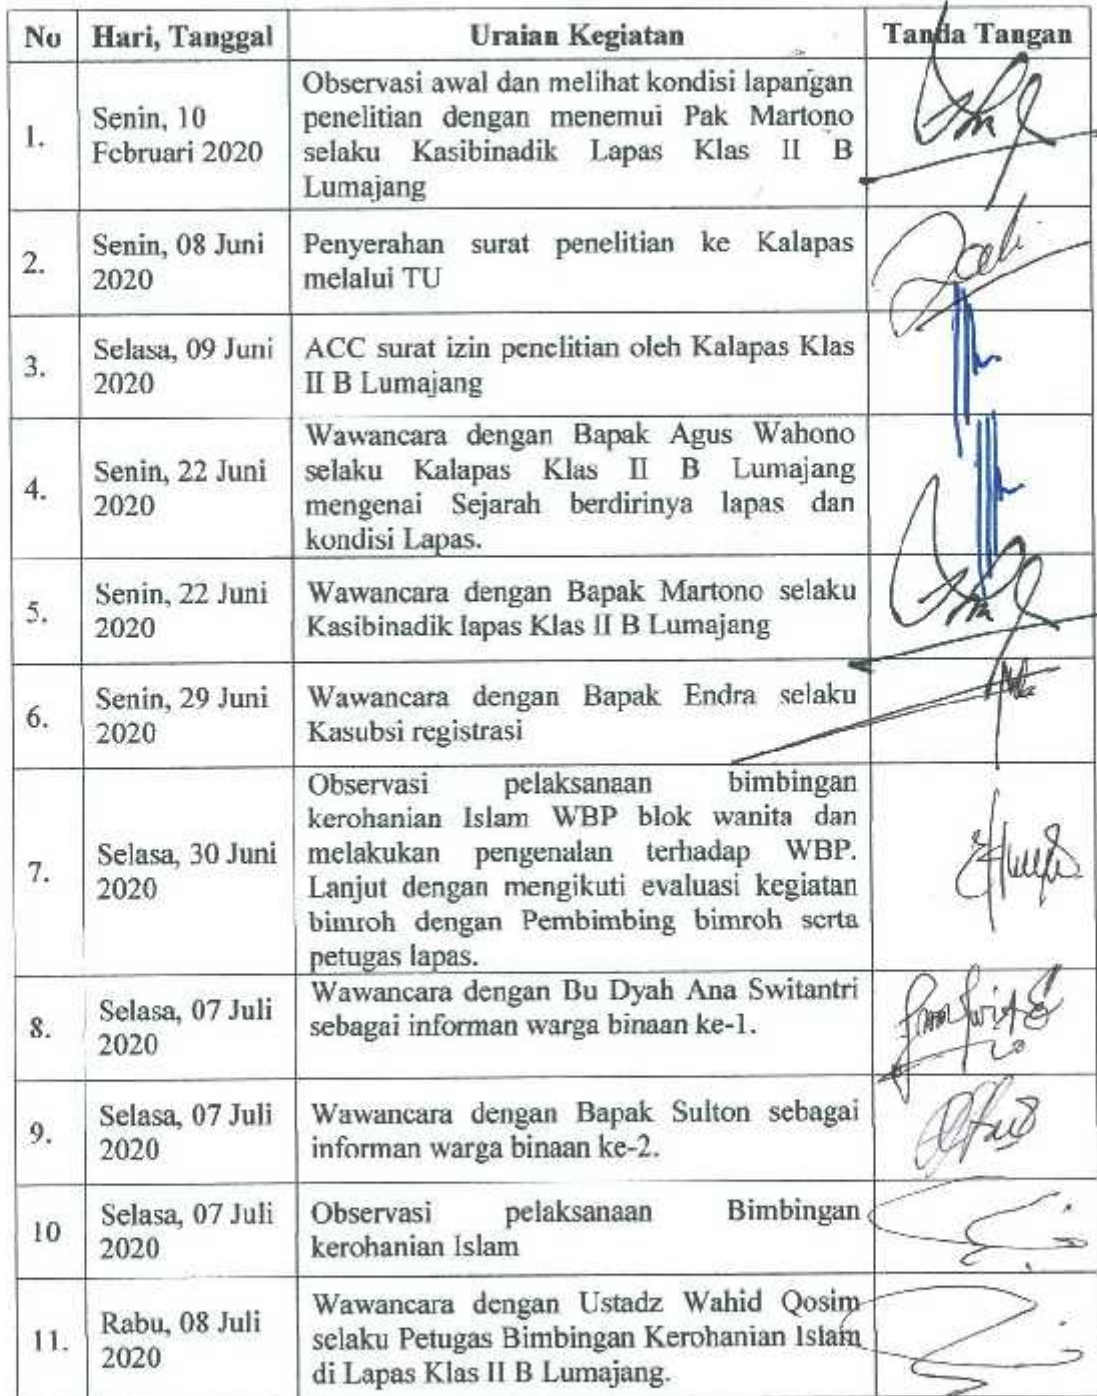 No Hari, Tanggal Uraian Kegiatan Tanda Tangan
1. Senin, 10 Februari 2020
Observasi awal dan melihat kondisi lapangan
penelitian dengan menemui Pak Martono
selaku Kasibinadik Lapas Klas II B
Lumajang
2. Senin, 08 Juni 2020
Penyerahan surat penelitian ke Kalapas
melalui TU
3. Selasa, 09 Juni 2020
ACC surat izin penelitian oleh Kalapas Klas
II B Lumajang
4. Senin, 22 Juni 2020
Wawancara dengan Bapak Agus Wahono
selaku Kalapas Klas II B Lumajang
mengenai Sejarah berdirinya lapas dan
kondisi Lapas.
5. Senin, 22 Juni 2020
Wawancara dengan Bapak Martono selaku
Kasibinadik lapas Klas II B Lumajang
6. Senin, 29 Juni 2020
Wawancara dengan Bapak Endra selaku
Kasubsi registrasi
7. Selasa, 30 Juni 2020
Observasi pelaksanaan bimbingan
kerohanian Islam WBP blok wanita dan
melakukan pengenalan terhadap WBP.
Lanjut dengan mengikuti evaluasi kegiatan
bimroh dengan Pembimbing bimroh serta
petugas lapas.
8. Selasa, 07 Juli 2020
Wawancara dengan Bu Dyah Ana Switantri
sebagai informan warga binaan ke-1.
9. Selasa, 07 Juli 2020
Wawancara dengan Bapak Sulton sebagai
informan warga binaan ke-2.
10 Selasa, 07 Juli 2020
Observasi pelaksanaan Bimbingan
kerohanian Islam
11. Rabu, 08 Juli 2020
Wawancara dengan Ustadz Wahid Qosim
selaku Petugas Bimbingan Kerohanian Islam
di Lapas Klas II B Lumajang.